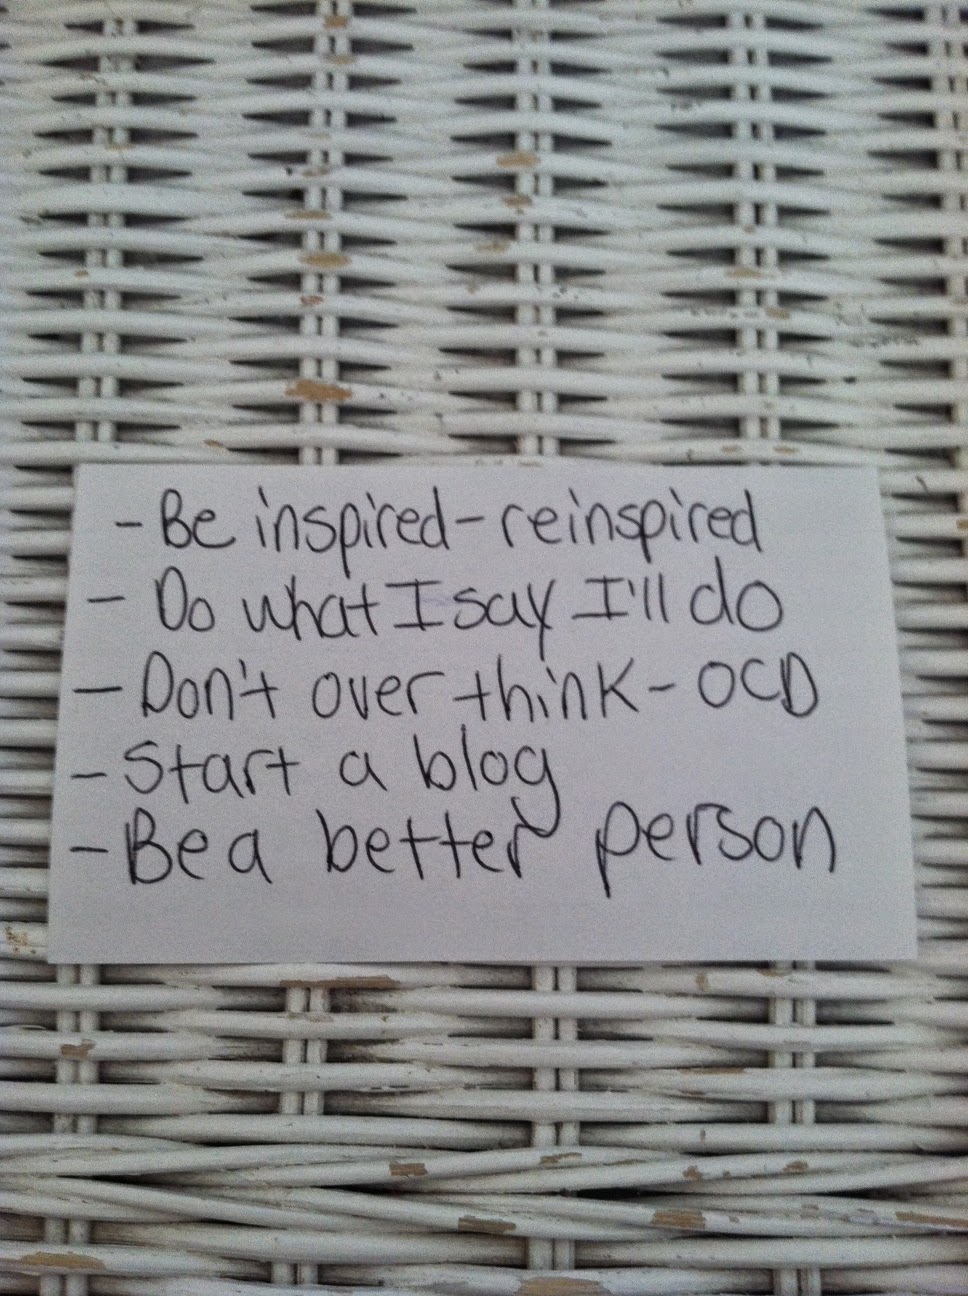 - Be inspired - reinspired
- Do what I say I'll do
- Don't over think - OCD
- Start a blog
- Be a better person